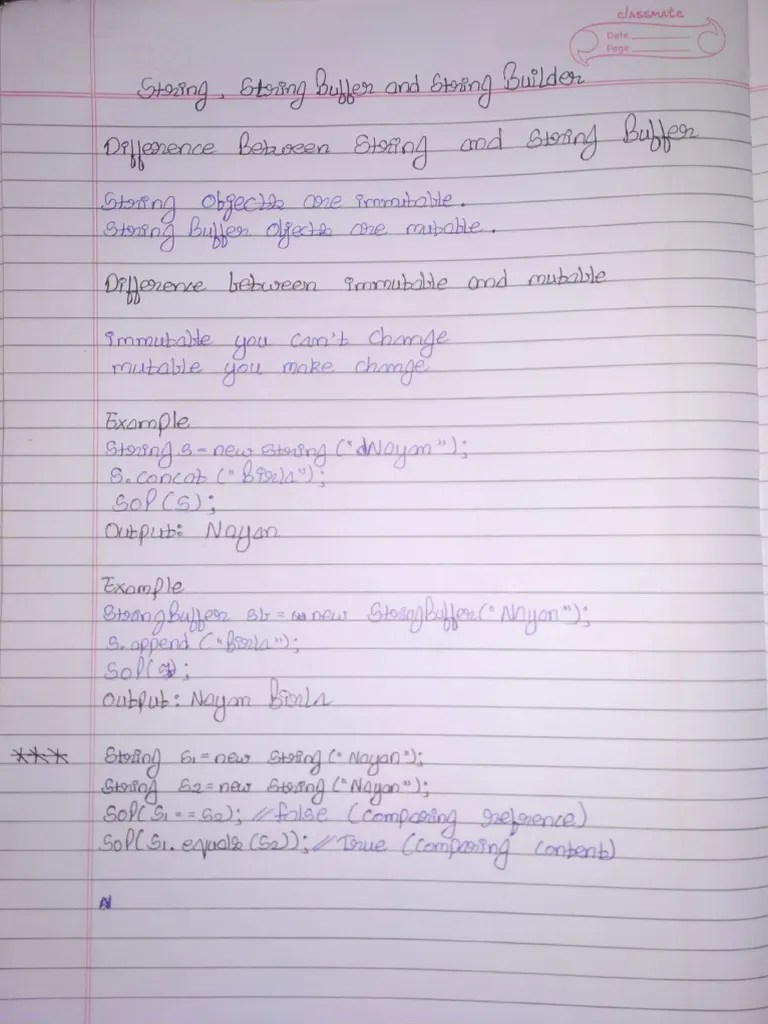 classmate
Date
Page
String, String Buffer and String Builder
Difference Between String and String Buffer
String Objects are immutable.
String Buffer objects are mutable.
Difference between immutable and mutable
immutable you can't change
mutable you make change
Example
String s = new String ("Nayan");
S.concat ("Birla");
SOP(S);
Output: Nayan
Example
StringBuffer sb = new StringBuffer("Nayan");
S.append ("Birla");
SOP(s);
Output: Nayan Birla
*** String S1 = new String ("Nayan");
String S2 = new String ("Nayan");
SOP(S1 == S2); //false (comparing reference)
SOP(S1.equals(S2)); //True (comparing content)
N